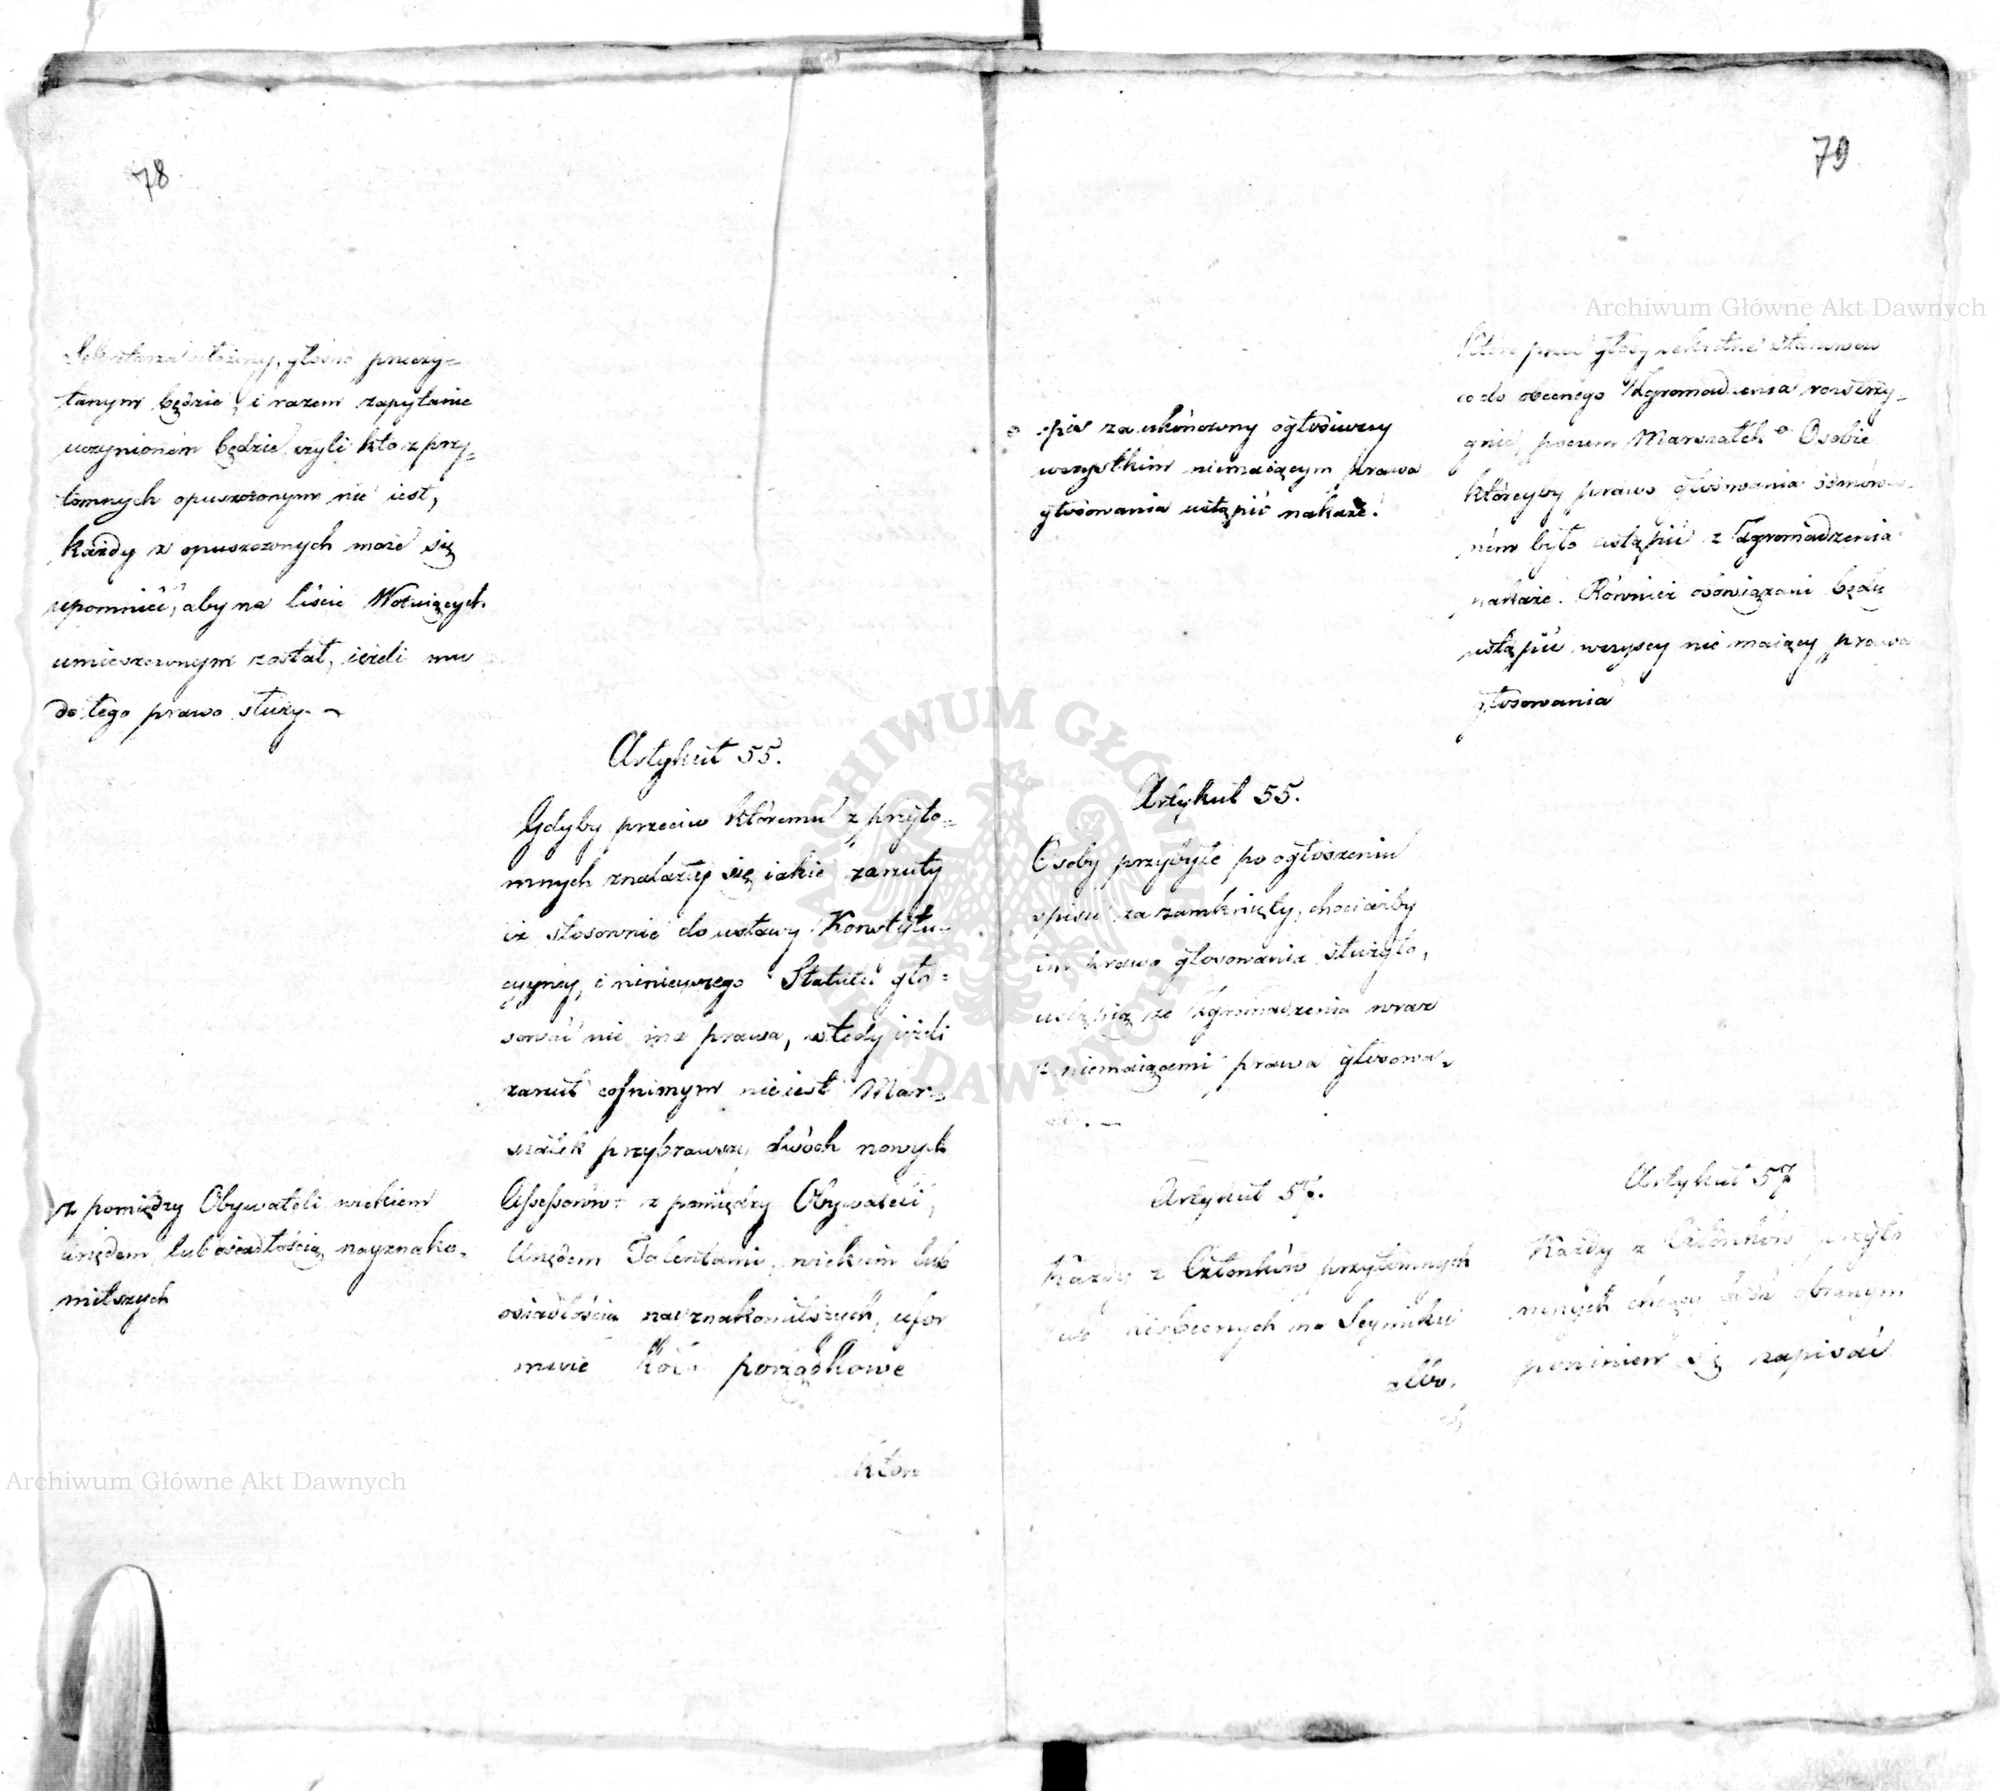 78
Sekretarza ułożony, głośno przeczy=
tanym będzie, i razem zapytanie
uczynionem będzie czyli kto z przy=
tomnych opuszczonym nie iest,
każdy z opuszczonych może się
upomnieć, aby na liście Wotuiących
umieszczonym został, ieżeli mu
do tego prawo służy. ~
z pomiędzy Obywateli wiekiem
urzędem lub osiadłością nayznako=
mitszych
Artykuł 55.
Gdyby przeciw któremu z przyto=
mnych znalazły się iakie zarzuty
iż stosownie do ustawy Konstytu=
cyyney, i ninieyszego Statutu gło=
sować nie ma prawa, wtedy ieżeli
zarzut cofnionym nie iest Mar=
szałek przybrawszy dwóch nowych
Assessorów z pomiędzy Obywateli,
Urzędem Talentami, wiekiem lub
osiadłością nayznakomitszych, ufor
muie Koło porządkowe
które
79
spis za ukończony ogłosiwszy
wszystkim niemaiącym prawa
głosowania ustąpić nakaże.
Artykuł 55.
Osoby przybyłe po ogłoszeniu
spisu za zamknięty, chociażby
im prawo głosowania służyło,
ustąpią ze Zgromadzenia wraz
z niemaiącemi prawa głosowa=
Artykuł 57.
Każdy z Członków przytomnych
lub nieobecnych na Seymiku
albo.
Które przez głosy sekretne stanowczo
co do obecnego Zgromadzenia rozstrzy=
gnie, poczem Marszałek Osobie
któreyby prawo głosowania odmówio=
nem było ustąpić z Zgromadzenia
nakaże. Również obowiązani będą
ustąpić wszyscy nie maiący prawa
głosowania
Artykuł 57
Każdy z Członków przyto
mnych chcący bydź obranym
powinien się zapisać
Archiwum Główne Akt Dawnych
Archiwum Główne Akt Dawnych
ARCHIWUM GŁÓWNE AKT DAWNYCH